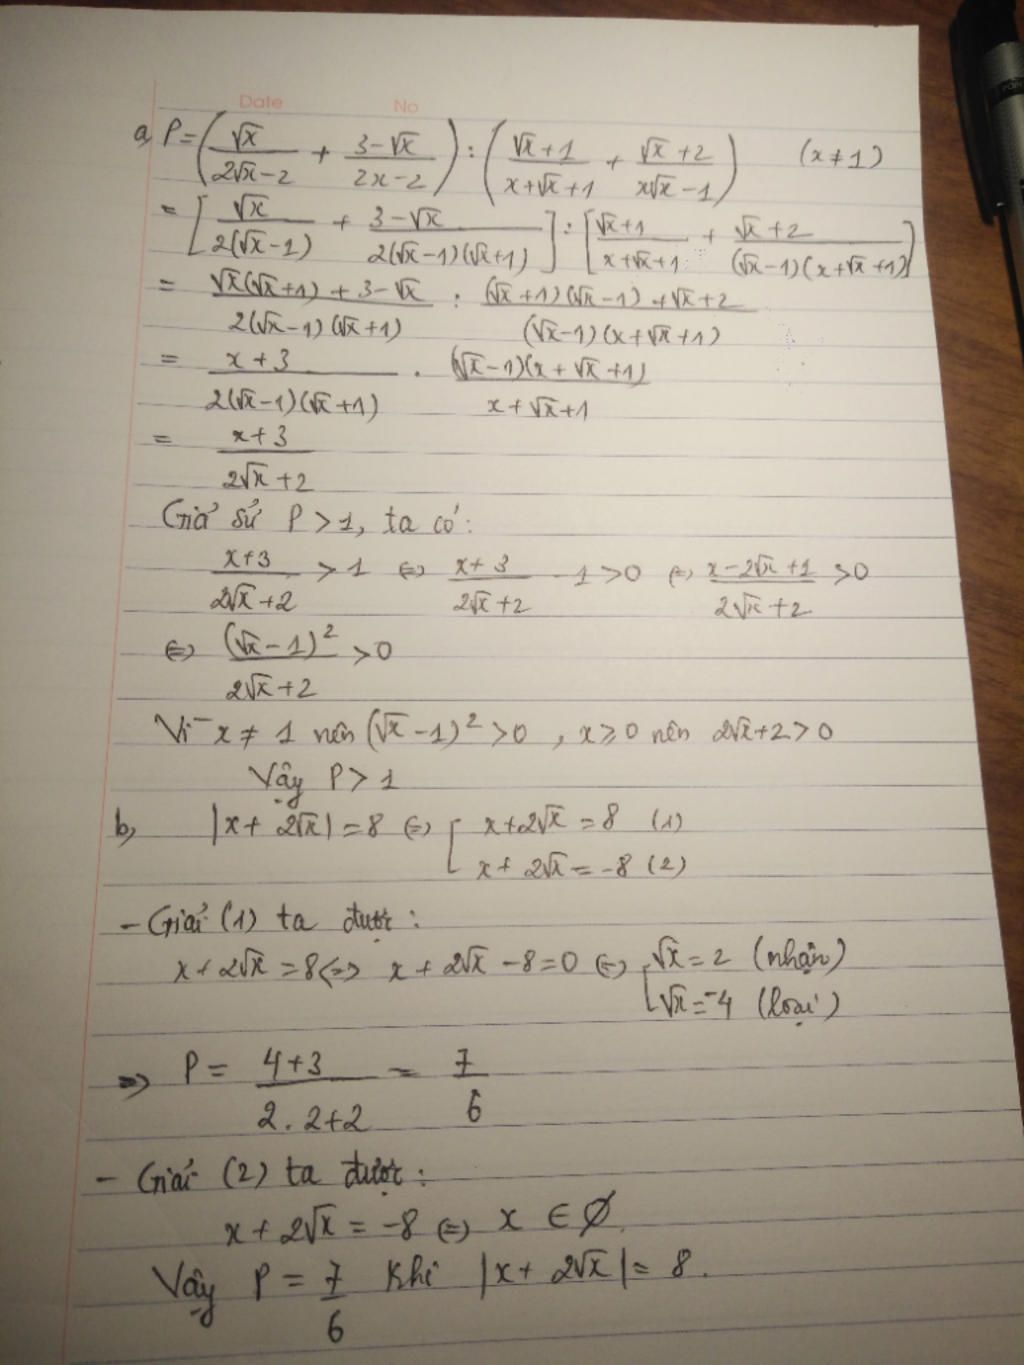 Date No
a, P = (√x / (2√x - 2) + (3 - √x) / (2x - 2)) : ((√x + 1) / (x + √x + 1) + (√x + 2) / (x√x - 1)) (x ≠ 1)
= [√x / 2(√x - 1) + (3 - √x) / 2(√x - 1)(√x + 1)] : [(√x + 1) / (x + √x + 1) + (√x + 2) / (√x - 1)(x + √x + 1)]
= (√x(√x + 1) + 3 - √x) / 2(√x - 1)(√x + 1) : ((√x + 1)(√x - 1) + √x + 2) / (√x - 1)(x + √x + 1)
= (x + 3) / 2(√x - 1)(√x + 1) . (√x - 1)(x + √x + 1) / (x + √x + 1)
= (x + 3) / (2√x + 2)
Giả sử P > 1, ta có:
(x + 3) / (2√x + 2) > 1 ⇔ (x + 3) / (2√x + 2) - 1 > 0 ⇔ (x - 2√x + 1) / (2√x + 2) > 0
⇔ (√x - 1)² / (2√x + 2) > 0
Vì x ≠ 1 nên (√x - 1)² > 0, x ≥ 0 nên 2√x + 2 > 0
Vậy P > 1
b, |x + 2√x| = 8 ⇔ [ x + 2√x = 8 (1)
x + 2√x = -8 (2)
- Giải (1) ta được:
x + 2√x = 8 ⇔ x + 2√x - 8 = 0 ⇔ [ √x = 2 (nhận)
√x = -4 (loại)
⇒ P = (4 + 3) / (2 . 2 + 2) = 7 / 6
- Giải (2) ta được:
x + 2√x = -8 ⇔ x ∈ ∅.
Vậy P = 7 / 6 khi |x + 2√x| = 8.